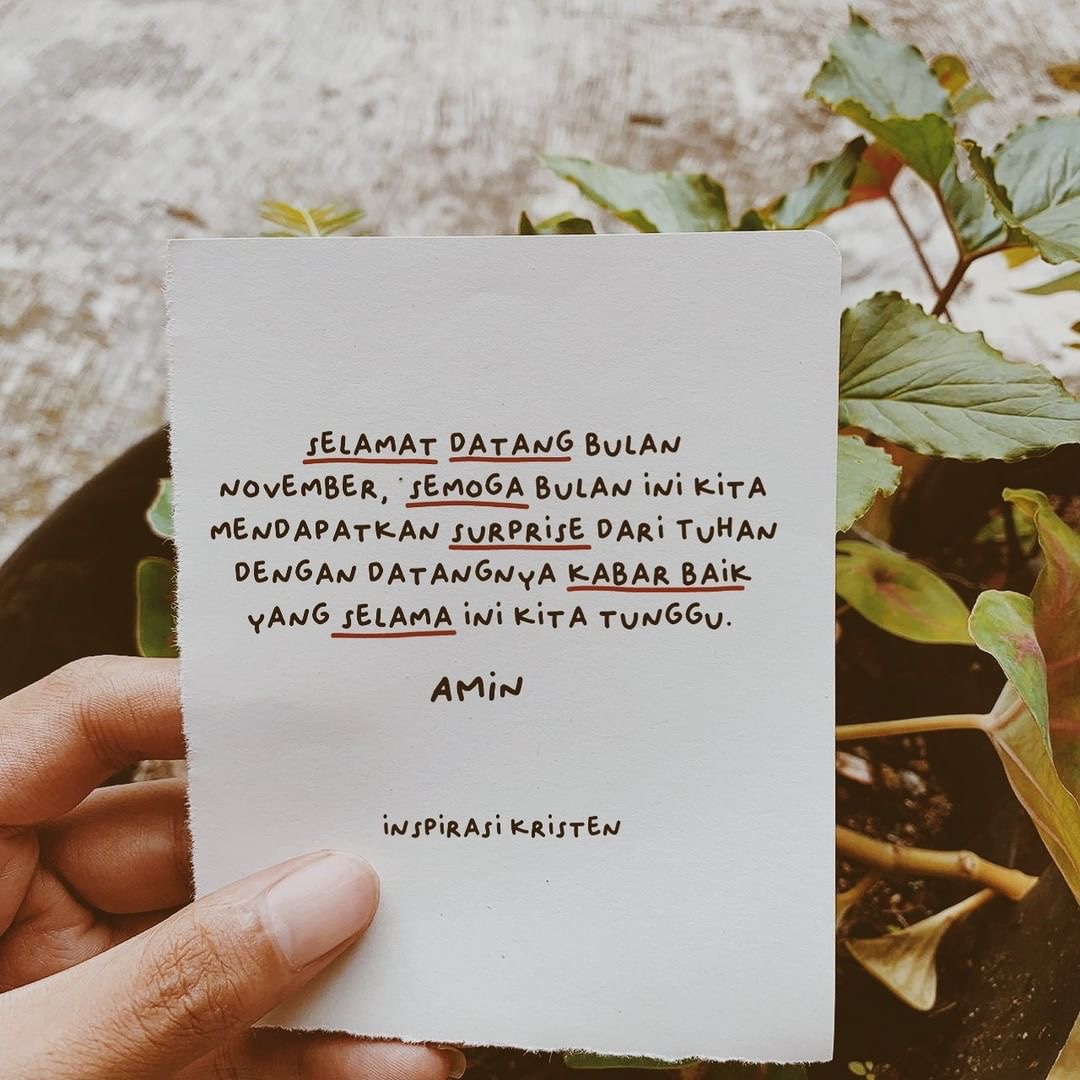 SELAMAT DATANG BULAN
NOVEMBER, SEMOGA BULAN iNi KiTA
MENDAPATKAN SURPRiSE DARi TUHAN
DENGAN DATANGNYA KABAR BAiK
YANG SELAMA iNi KiTA TUNGGU.
AMiN
iNSPiRASi KRiSTEN